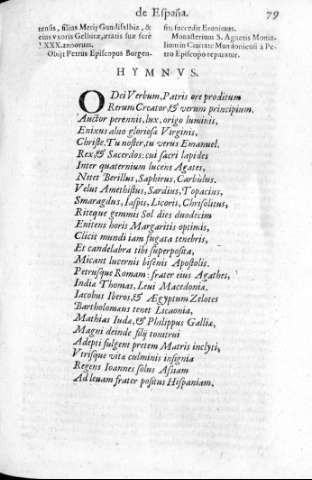 de España.
79
tensis, filius Metij Gundisalbiz, &
eius vxoris Gelbiræ, ætatis suæ ferè
LXXX. annorum.
Obijt Petrus Episcopus Burgen-
sis succedit Eronicus.
Monasterium S. Agnetis Monia-
lium in Ciuitate Murdoniensi à Pe-
tro Episcopo reparatur.
HYMNVS.
O Dei Verbum, Patris ore proditum
Rerum Creator, & verum principium.
Auctor perennis, lux, origo luminis,
Enixus aluo gloriosa Virginis,
Christe, Tu noster, tu verus Emanuel.
Rex, & Sacerdos: cui sacri lapides
Inter quaternium lucens Agates,
Nitet Berillus, Saphirus, Carbũlus.
Velus Amethistus, Sardius, Topacius,
Smaragdus, Iaspis, Licoris, Chrisolitus,
Riteque gemmis Sol dies duodecim
Enitens horis Margaritis optimis,
Clicit mundi iam fugata tenebris,
Et candelabra tibi superposita,
Micant lucernis bisenis Apostolis.
Petrusque Romam: frater eius Agathes,
India Thomas, Leui Macedonia.
Iacobus Iberos, & Ægyptum Zelotes
Bartholomaus tenet Licaonia,
Mathias Iuda, & Philippus Gallia,
Magni deinde filij tonitrui
Adepti fulgent pretem Matris inclyti,
Vtrisque vita culminis insignia
Regens Ioannes solus Asiam
Ad leuam frater positus Hispaniam.